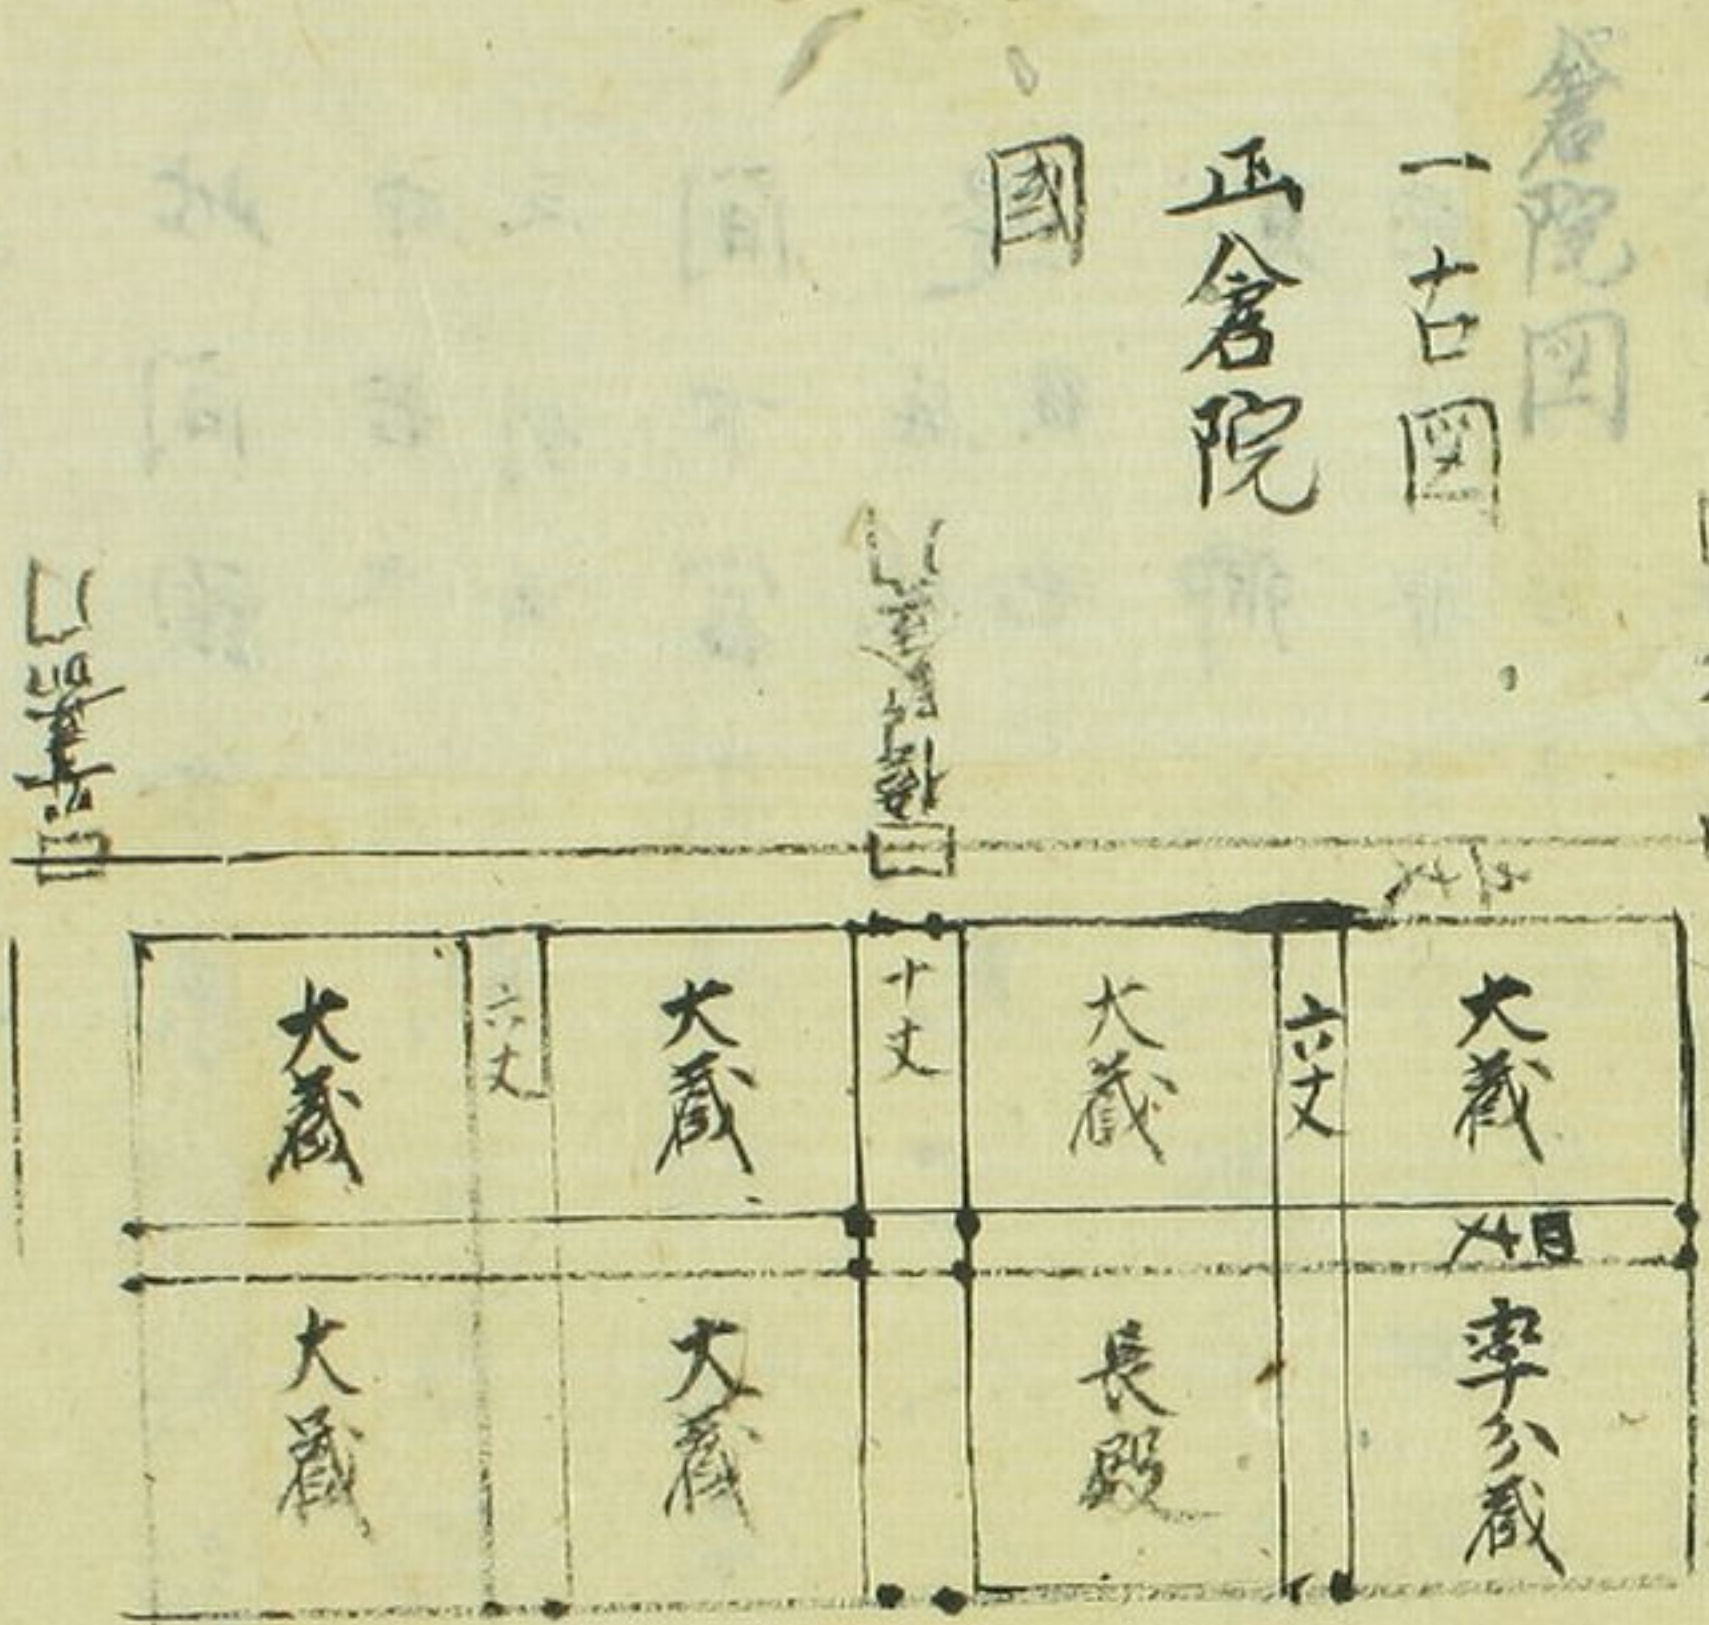 倉院図
一古図
正倉院
國
大蔵
六丈
大蔵
十丈
大蔵
六丈
大蔵
四丈
率分蔵
長殿
大蔵
大蔵